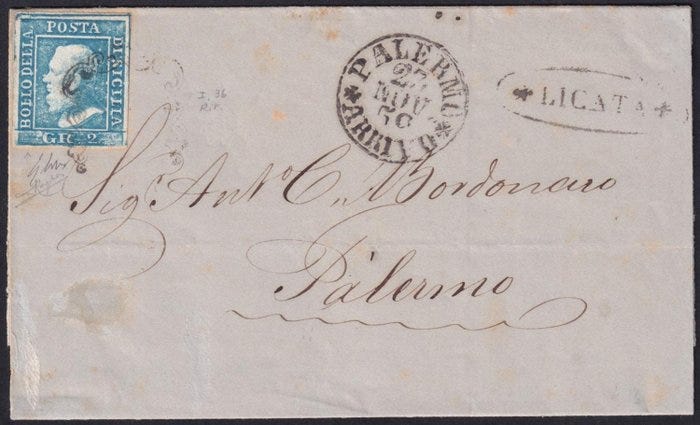 POSTA
BOLLO DELLA
DI SICILIA
GR. 2
PALERMO
27
NOV
ARRIVO
* LICATA *
I. 36
Sig.r Ant.o C. Bordonaro
Palermo